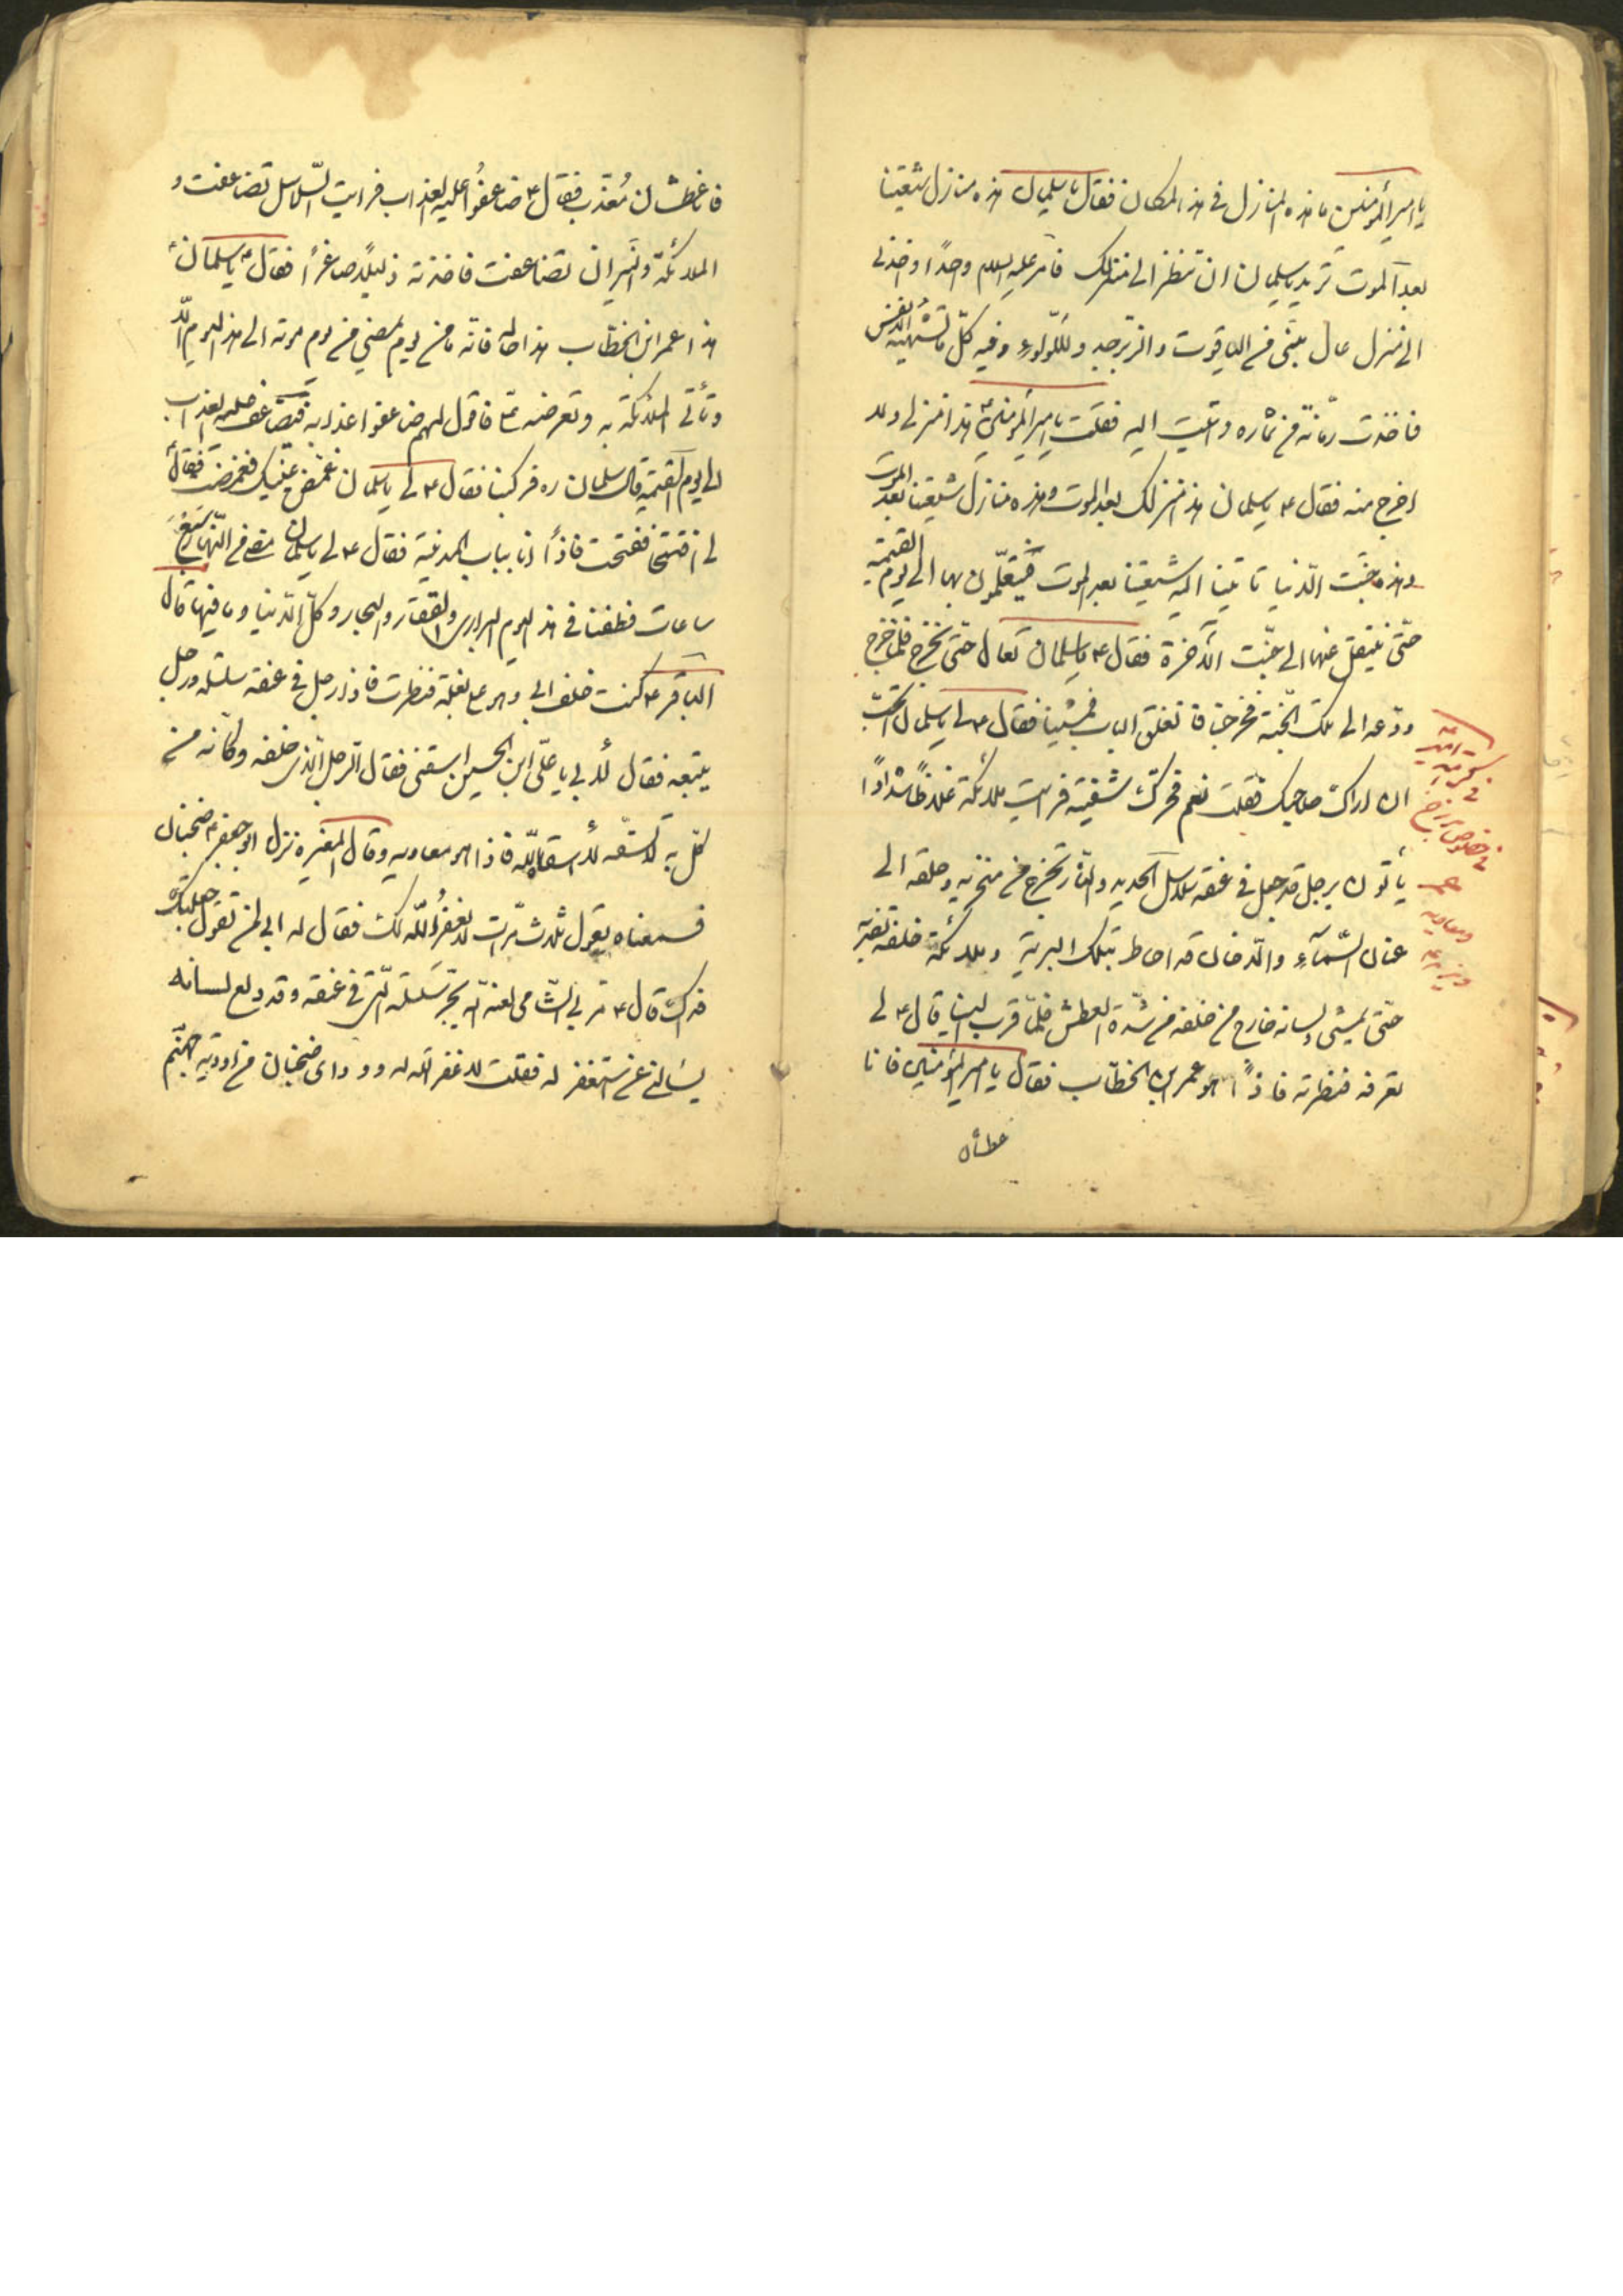 يا اميرالمؤمنين ما هذه المنازل في هذا المكان فقال يا سلمان هذه منازل شيعتنا
بعد الموت تريد يا سلمان ان تنظر الى منزلك فامر عليه السلام واحدًا واخذني
الى منزل عال مبنى من الياقوت والزبرجد واللؤلؤ وفيه كلّ ما تشتهيه الانفس
فاخذت رمّانة من ثماره واتيت اليه فقلت يا اميرالمؤمنين هذا منزلي ولا
اخرج منه فقال ع يا سلمان هذا منزلك بعد الموت وهذه منازل شيعتنا بعد الموت
وهذه جنّت الدّنيا تاتينا اليه شيعتنا بعد الموت فيتنعّمون بها الى يوم القيمة
حتّى ينتقل عنها الى جنّت الآخرة فقال ع يا سلمان تعال حتّى نخرج فلمّا خرج
ودّعه الى تلك الجنّة فخرجنا فانغلق الباب فمشينا فقال ع لي يا سلمان اتحبّ
ان اراك صاحبك فقلت نعم فحرّك شفتيه فرايت ملائكة غلاظًا شدادًا
يأتون برجل قد جعل في عنقه سلاسل الحديد والنّار تخرج من منخريه وحلقه الى
عنان السّماء والدّخان قد احاط بتلك البرية وملائكة خلفه تضربه
حتّى يمشى ولسانه خارج من حلقه من شدّة العطش فلمّا قرب الينا قال ع لي
تعرفه فنظرته فاذًا هو عمر ابن الخطّاب فقال يا اميرالمؤمنين فانا
عطشان
في
في خصوص برزخ
عمر
ومعاويه
فانا عطشان مُعذّب فقال ع ضاعفُوا عليه العذاب فرايت السّلاسل تضاعفت و
الملائكة والنّيران تضاعفت فاخذته ذليلًا صاغرًا فقال ع يا سلمان
هذا عمر ابن الخطّاب هذا حاله فانّه ما من يوم يمضي من يوم موته الى هذا اليوم الّا
وتأتي الملائكة به وتعرضه عليّ فاقول لهم ضاعفوا عذابه فيضاعف عليه العذاب
الى يوم القيمة قال سلمان ره فركبنا فقال ع لي يا سلمان غمّض عينيك فغمضت فقال
لي افتحها ففتحت فاذًا انا بباب المدينة فقال ع لي يا سلمان مضى من النّهار سبع
ساعات وطفنا في هذا اليوم البراري والقفار والبحار وكلّ الدّنيا وما فيها قال
الباقر ع كنت خلف ابي وهو على بغلة فنظرت فاذا رجل في عنقه سلسلة ورجل
يتبعه فقال لأبي يا علّي ابن الحسين اسقني فقال الرّجل الّذي خلفه وكانّه من
كّل به لا تسقه لا سقاه اللّه فاذا هو معاويه وقال المغيرة نزل ابو جعفر ع ضجنان
فسمعناه يقول ثلاث مرّات لا غفر اللّه لك فقال له ابي لمن تقول جعلت
فداك قال ع مرّ بي الشّامى لعنه اللّه يجرّ سلسلته الّتى في عنقه وقد دلع لسانه
يسألني عن استغفر له فقلت لا غفر اللّه له ووادى ضجنان من اودية جهنّم